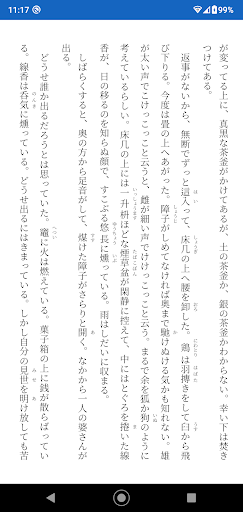 11:17
99%
が変ってる上に、真黒な茶釜がかけてあるが、土の茶釜か、銀の茶釜かわからない。幸い下は焚き
つけてある。
返事がないから、無断でずっと這入って、床几の上へ腰を卸した。鶏は羽搏きをして臼から飛
び下りる。今度は畳の上へあがった。障子がしめてなければ奥まで馳けぬける気かも知れない。雄
が太い声でこけっこっこと云うと、雌が細い声でけけっこっこと云う。まるで余を狐か狗のように
考えているらしい。床几の上には一升枡ほどな煙草盆が閑静に控えて、中にはとぐろを捲いた線
香が、日の移るのを知らぬ顔で、すこぶる悠長に燻っている。雨はしだいに収まる。
しばらくすると、奥の方から足音がして、煤けた障子がさらりと開く。なかから一人の婆さんが
出る。
どうせ誰か出るだろうとは思っていた。竈に火は燃えている。菓子箱の上に銭が散らばってい
る。線香は呑気に燻っている。どうせ出るにはきまっている。しかし自分の見世を明け放しても苦